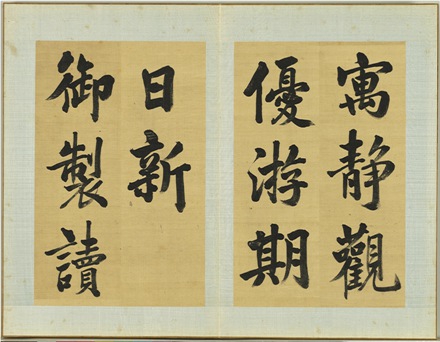 寓靜觀
優游期
日新
御製讀